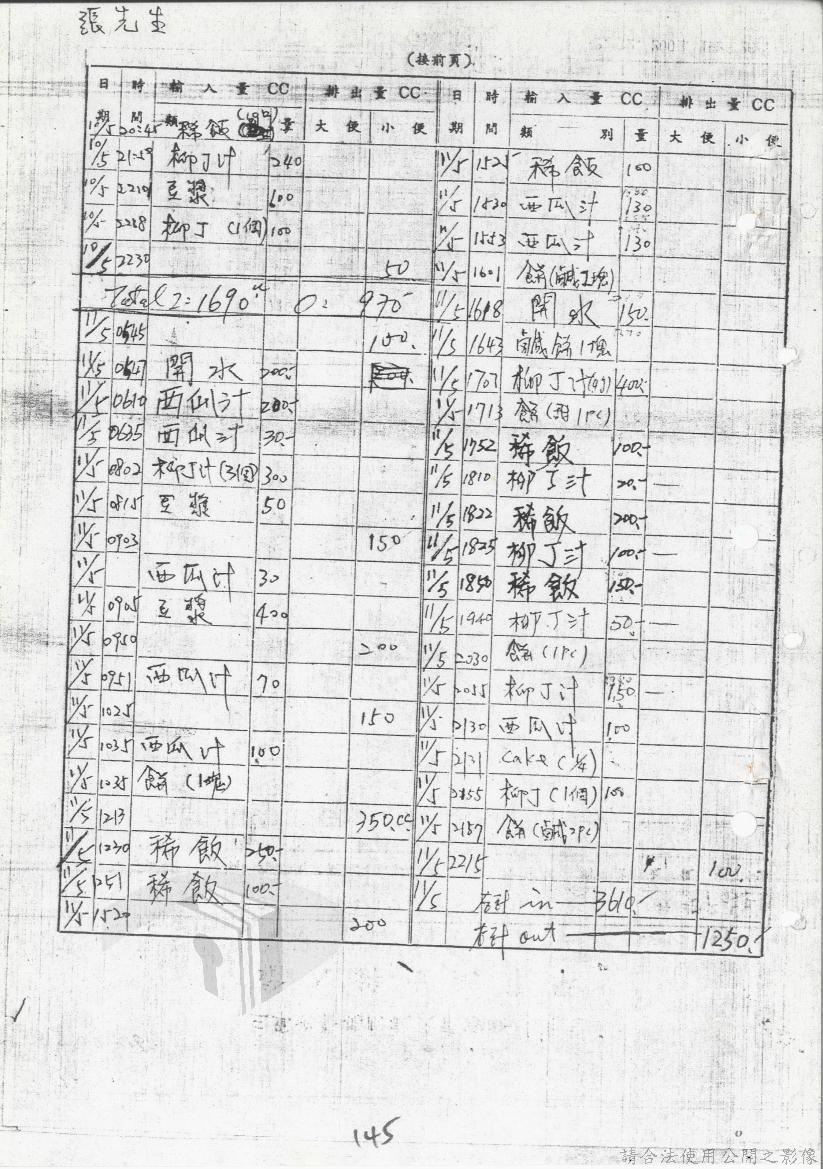 張先生
(接前頁)
日期 時間 輸入量CC 類 量 排出量CC 大便 小便
10/5 20:45 稀飯
10/5 21:50 柳丁汁 240
10/5 2210 豆漿 100
10/5 2228 柳丁(1個) 100
10/5 2230 50
Total I=1690 cc O: 970
11/5 0545 100.
11/5 0547 開水 200.-
11/5 0610 西瓜汁 200.-
11/5 0635 西瓜汁 30.-
11/5 0802 柳丁汁(3個) 300
11/5 0815 豆漿 50
11/5 0903 150
11/5 西瓜汁 30
11/5 0905 豆漿 400
11/5 0950 200
11/5 0951 西瓜汁 70
11/5 1025 150
11/5 1035 西瓜汁 100
11/5 1035 餅(1塊)
11/5 1213 350.cc
11/5 1230 稀飯 250.-
11/5 1251 稀飯 100.-
11/5 1520 200
日期 時間 輸入量CC 類別 量 排出量CC 大便 小便
11/5 1525 稀飯 100
11/5 1530 西瓜汁 130
11/5 1553 西瓜汁 130
11/5 1601 餅(鹹1塊)
11/5 1618 開水 150.
11/5 1643 鹹餅1塊
11/5 1703 柳丁汁 400.-
11/5 1713 餅(甜1PC)
11/5 1752 稀飯 100.-
11/5 1810 柳丁汁 20.-
11/5 1822 稀飯 200.-
11/5 1825 柳丁汁 100.-
11/5 1850 稀飯 150.-
11/5 1940 柳丁汁 50.-
11/5 2030 餅(1PC)
11/5 2055 柳丁汁
11/5 2130 西瓜汁 100
11/5 2131 cake(¼)
11/5 2155 柳丁(1個) 100
11/5 2157 餅(鹹2PC)
11/5 2215 100.
11/5 共計 in 3610.-
共計 out 1250.-
145
請合法使用公開之影像